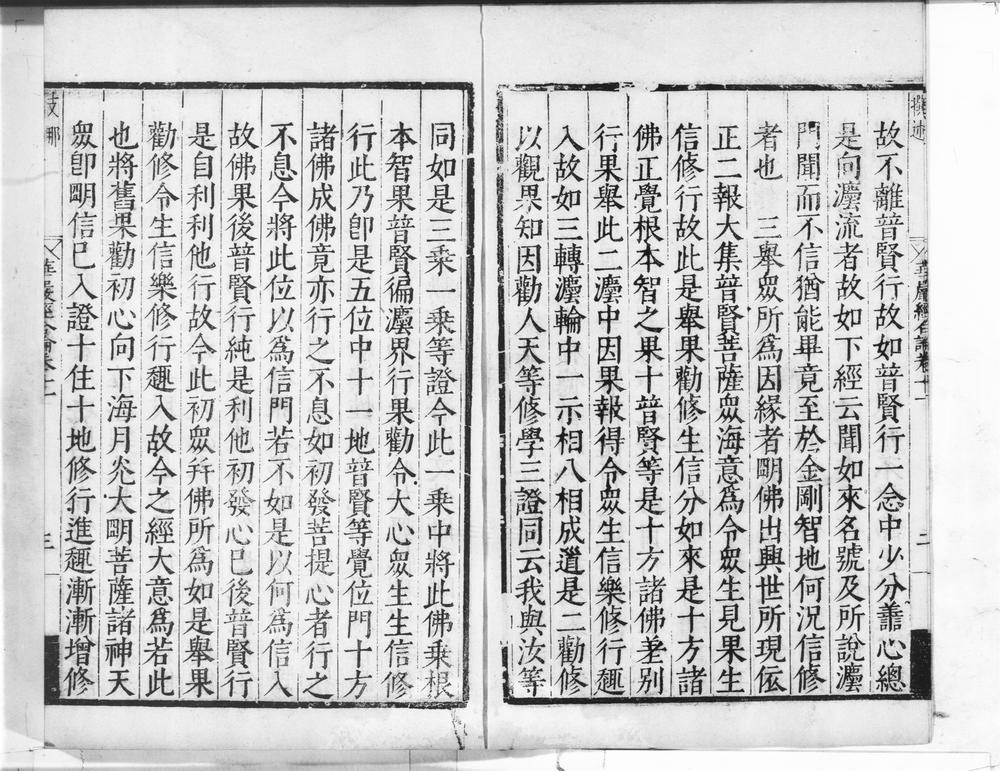 撰述
故不離普賢行故如普賢行一念中少分善心總
是向灋流者故如下經云聞如來名號及所說灋
門聞而不信猶能畢竟至於金剛智地何況信修
者也　三舉眾所為因緣者朙佛出興世所現依
正二報大集普賢菩薩眾海意為令眾生見果生
信修行故此是舉果勸修生信分如來是十方諸
佛正覺根本智之果十普賢等是十方諸佛差別
行果舉此二灋中因果報得令眾生信樂修行趣
入故如三轉灋輪中一示相八相成道是二勸修
以觀果知因勸人天等修學三證同云我與汝等
華嚴經合論卷十一
二
同如是三乘一乘等證今此一乘中將此佛乘根
本智果普賢徧灋界行果勸令大心眾生生信修
行此乃卽是五位中十一地普賢等覺位門十方
諸佛成佛竟亦行之不息如初發菩提心者行之
不息今將此位以為信門若不如是以何為信入
故佛果後普賢行純是利他初發心已後普賢行
是自利利他行故今此初眾幷佛所為如是舉果
勸修令生信樂修行趣入故今之經大意為若此
也將舊果勸初心向下海月光大朙菩薩諸神天
眾卽朙信已入證十住十地修行進趣漸漸增修
支那
華嚴經合論卷十一
三